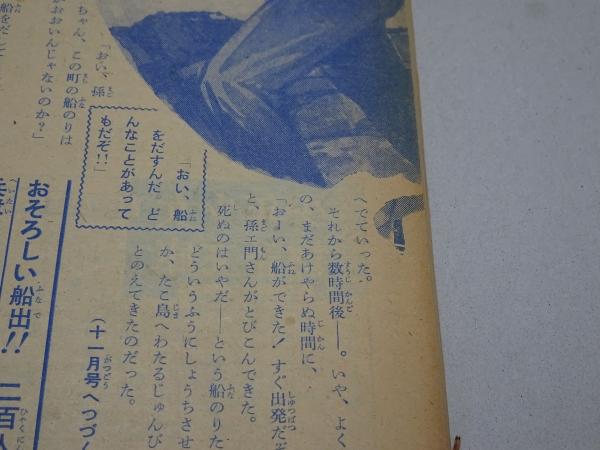 へでていった。
それから数時間後――。いや、よく
の、まだあけやらぬ時間に、
「おーい、船ができた！すぐ出発だぞ
と、孫エ門さんがとびこんできた。
死ぬのはいやだ――という船のりた
どういうふうにしょうちさせ
か、たこ島へわたるじゅんび
とのえてきたのだった。
（十一月号へつづく
「おい、船
をだすんだ。ど
んなことがあって
もだぞ!!」
「おい、孫
ちゃん、この町の船のりは
がおおいんじゃないのか？」
船をだし
おそろしい船出!!　二百人